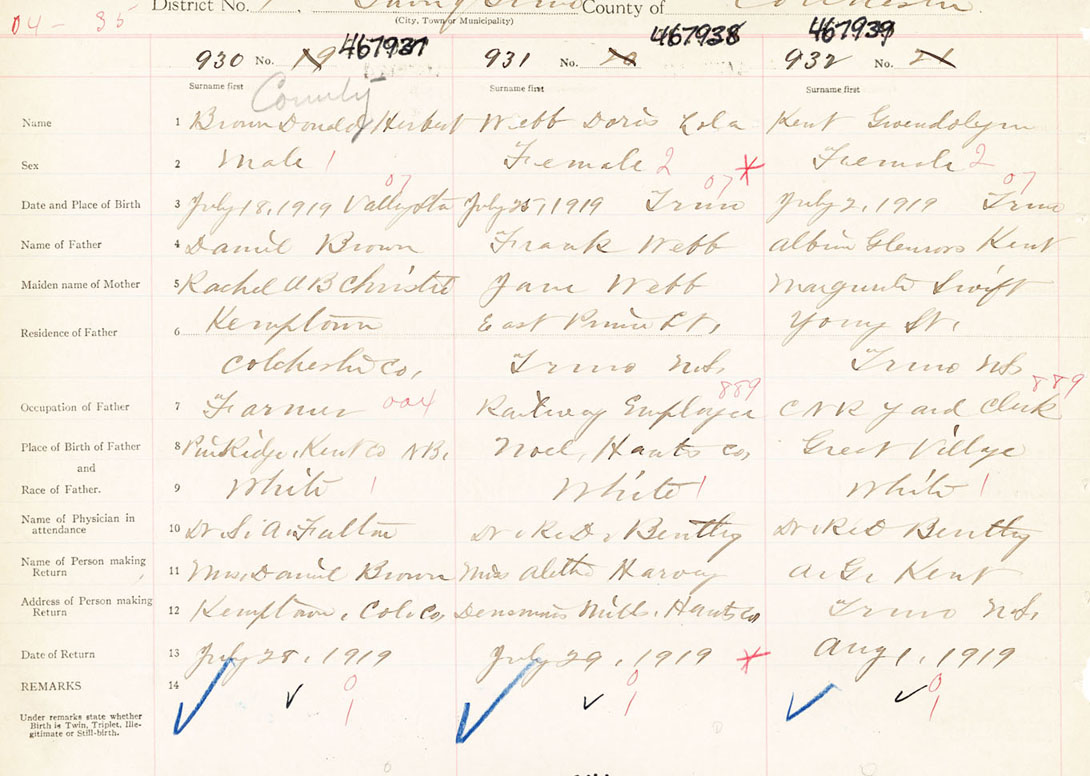 04 - 35 District No. County of Colchester
(City, Town or Municipality)
930 No. 19 467937 931 No. 20 467938 932 No. 21 467939
Surname first County Surname first Surname first
Name 1 Brown Donald Herbert Webb Doris Lola Kent Gwendolyn
Sex 2 Male 1 Female 2 Female 2
07 07 07
Date and Place of Birth 3 July 18, 1919 July 25, 1919 Truro July 2, 1919 Truro
Name of Father 4 Daniel Brown Frank Webb Kent
Maiden name of Mother 5 Rachel A B Christie Jane Webb Marguerite Swift
Residence of Father 6 Kemptown East Prince St, Young St,
Colchester Co, Truro N.S. Truro N.S.
889 889
Occupation of Father 7 Farmer 004 Railway Employee CNR Yard Clerk
Place of Birth of Father 8 Pine Ridge, Kent Co N.B. Noel, Hants Co, Great Village
and
Race of Father. 9 White 1 White 1 White 1
Name of Physician in
attendance 10 Dr. S. A. Fulton Dr. R. D. Bentley Dr. R. D Bentley
Name of Person making
Return 11 Mrs. Daniel Brown Miss Aletha Harvey A. G. Kent
Address of Person making
Return 12 Kemptown, Col. Co, Densmores Mills, Hants Co Truro N.S.
Date of Return 13 July 28, 1919 July 29, 1919 Aug 1, 1919
REMARKS 14 0 0 0
1 1 1
Under remarks state whether
Birth is Twin, Triplet, Ille-
gitimate or Still-birth.